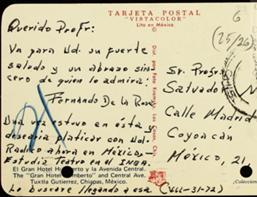 TARJETA POSTAL
"VISTACOLOR"
Lito en México
6
(25/26)
Querido Profr:
Va para Ud. su fuerte
saludo y un abrazo sin-
cero de quien lo admira:
Fernando De la Rosa
Una vez estuve en ésta y
desearía platicar con Ud.
Radico ahora en México.
Estudio Teatro en el INBA.
El Gran Hotel Humberto y la Avenida Central.
The Grand Hotel "Humberto" and Central Ave.
Tuxtla Gutierrez, Chiapas, México.
Lo buscaré llegando a esa (VIII-31-72)
Sr. Profr.
Salvador
Calle Madrid
Coyoacán
México, 21